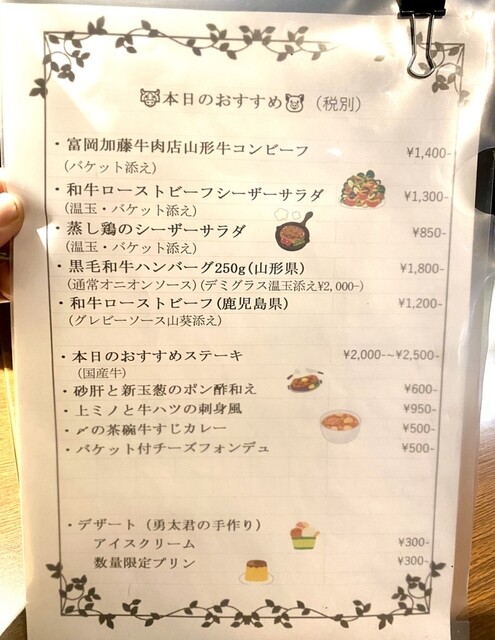 本日のおすすめ (税別)
・富岡加藤牛肉店山形牛コンビーフ ¥1,400-
(バケット添え)
・和牛ローストビーフシーザーサラダ ¥1,300-
(温玉・バケット添え)
・蒸し鶏のシーザーサラダ ¥850-
(温玉・バケット添え)
・黒毛和牛ハンバーグ250g(山形県) ¥1,800-
(通常オニオンソース)(デミグラス温玉添え¥2,000-)
・和牛ローストビーフ(鹿児島県) ¥1,200-
(グレビーソース山葵添え)
・本日のおすすめステーキ ¥2,000-~¥2,500-
(国産牛)
・砂肝と新玉葱のポン酢和え ¥600-
・上ミノと牛ハツの刺身風 ¥950-
・〆の茶碗牛すじカレー ¥500-
・バケット付チーズフォンデュ ¥500-
・デザート (勇太君の手作り)
アイスクリーム ¥300-
数量限定プリン ¥300-